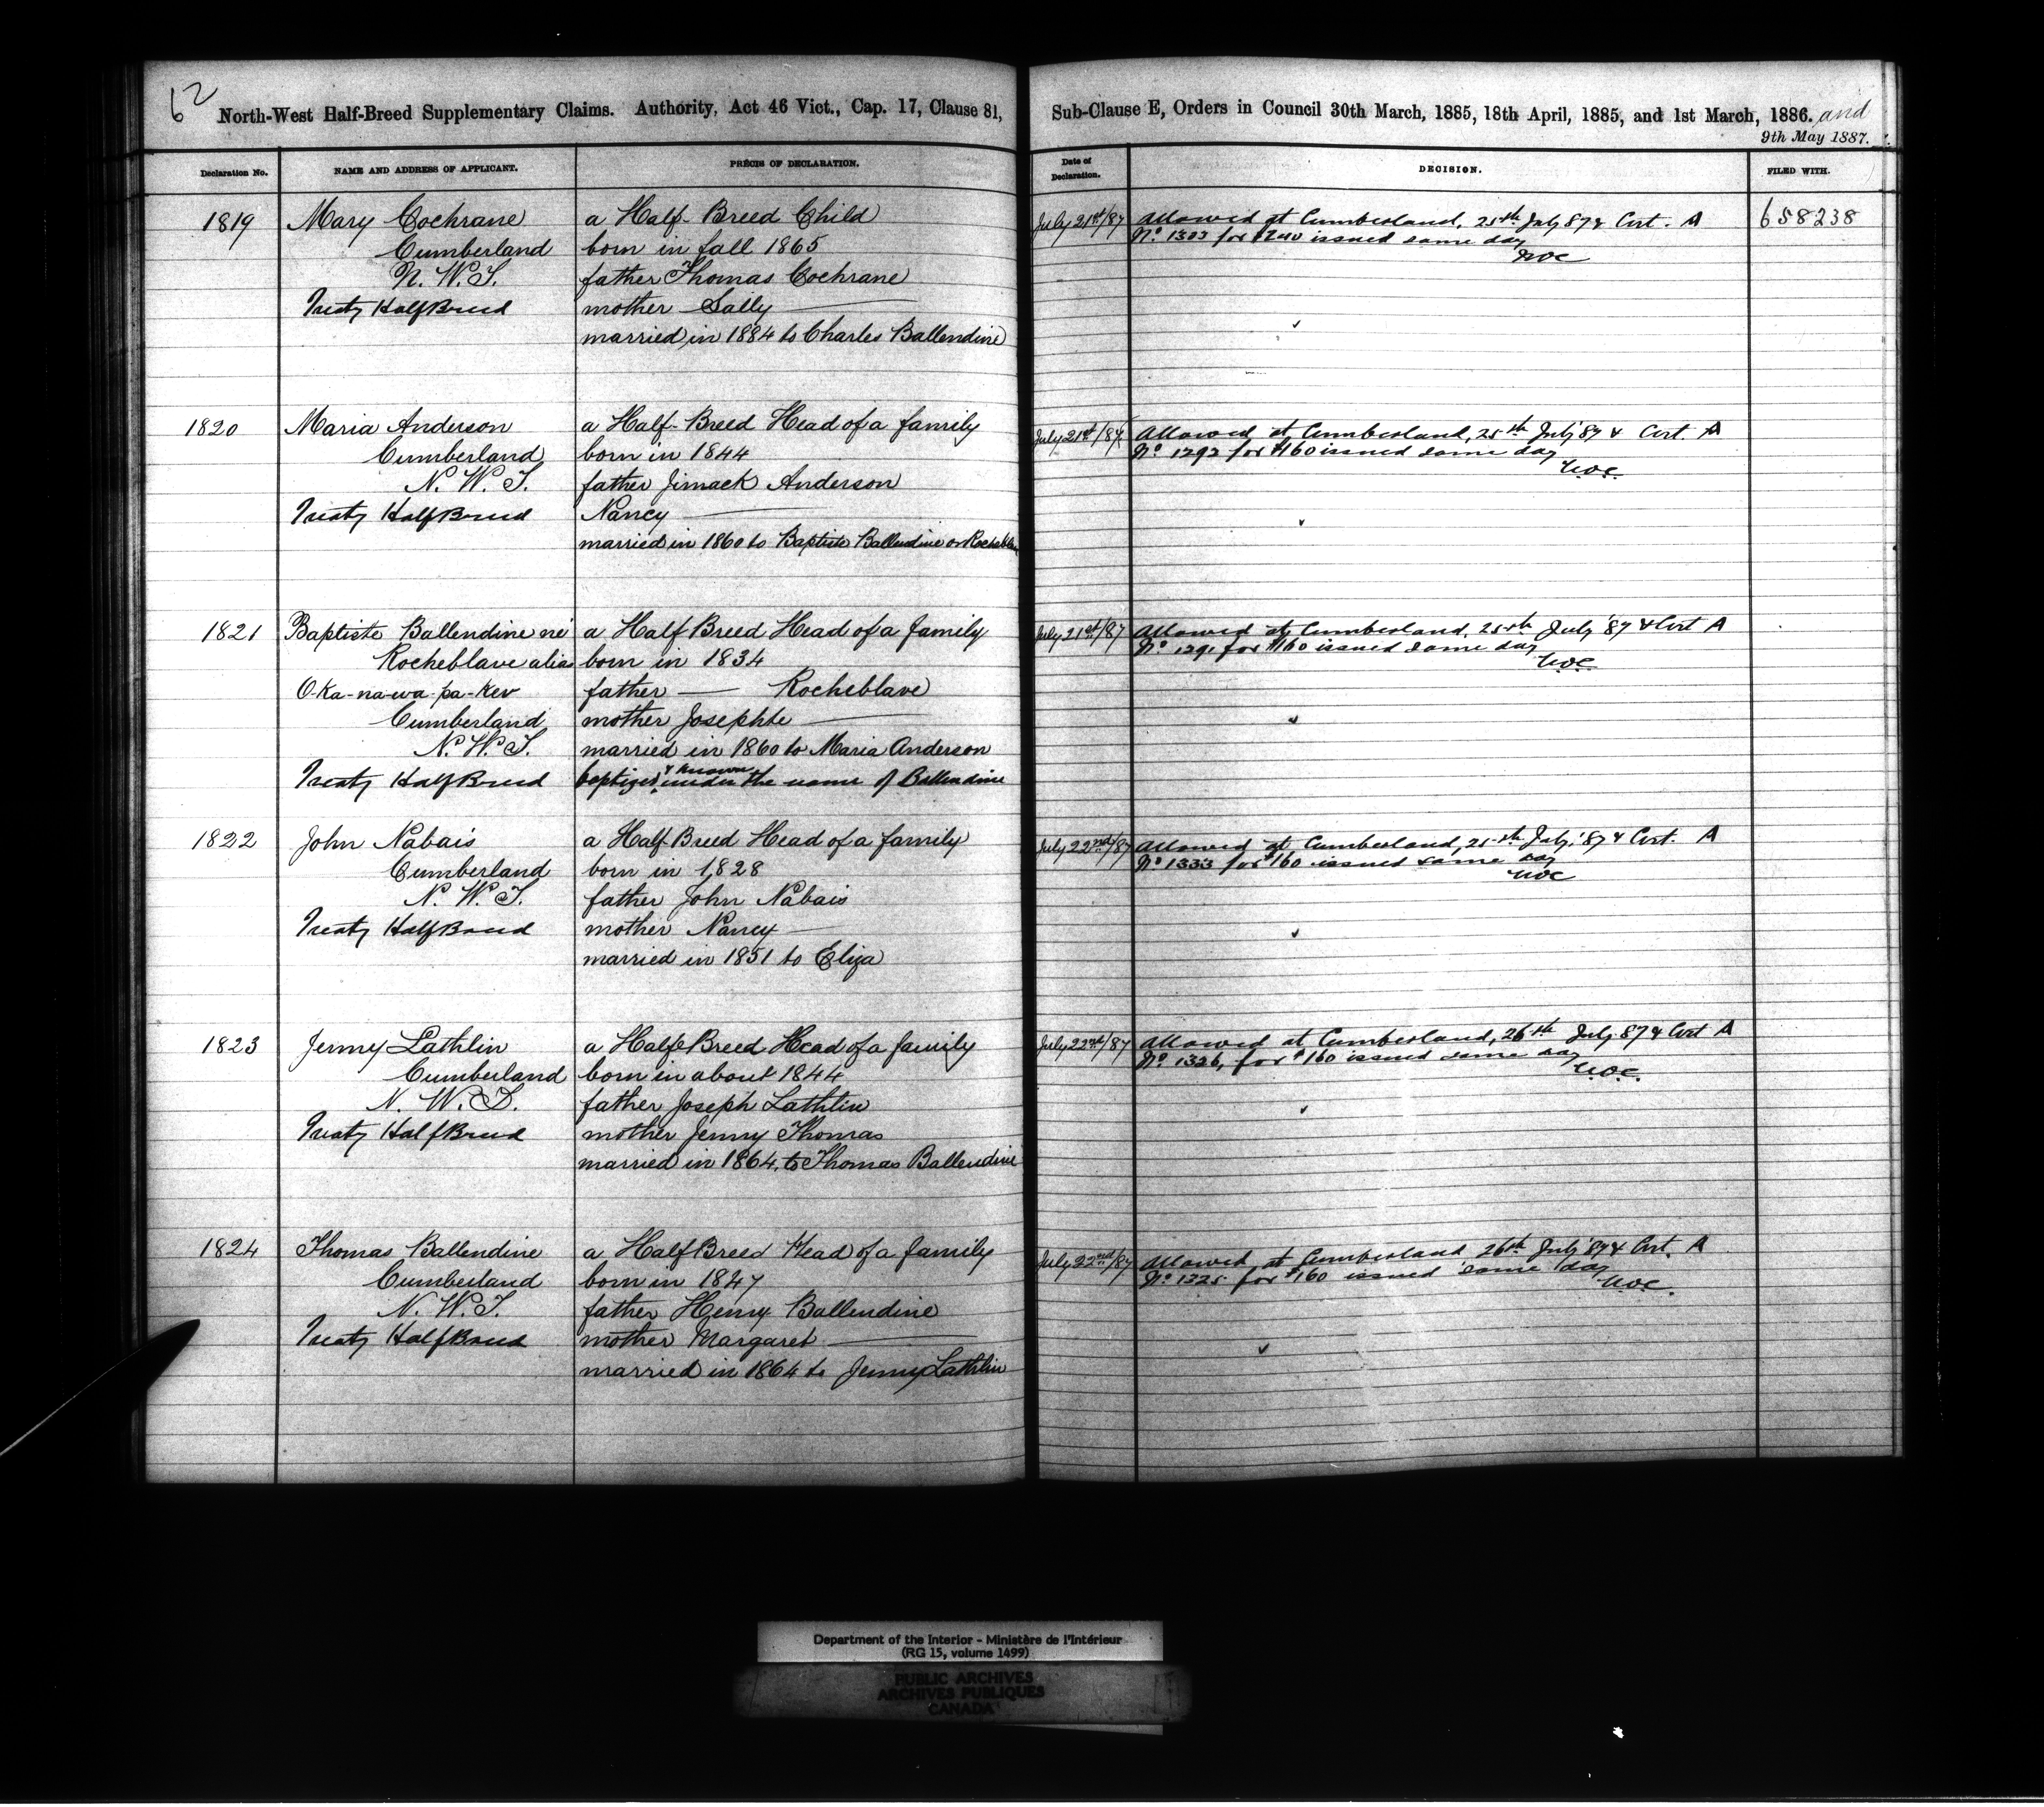 62
North-West Half-Breed Supplementary Claims. Authority, Act 46 Vict., Cap. 17, Clause 81,
Sub-Clause E, Orders in Council 30th March, 1885, 18th April, 1885, and 1st March, 1886. and
9th May 1887.
Declaration No.
NAME AND ADDRESS OF APPLICANT.
PRÉCIS OF DECLARATION.
Date of
Declaration.
DECISION.
FILED WITH.
1819
Mary Cochrane
Cumberland
N. W. T.
Treaty Half Breed
a Half-Breed Child
born in fall 1865
father Thomas Cochrane
mother Sally
married in 1884 to Charles Ballendine
July 21st/87
Allowed at Cumberland, 25th July 87 & Cert. A
No. for $240 issued same day
658238
1820
Maria Anderson
Cumberland
N. W. T.
Treaty Half Breed
a Half-Breed Head of a family
born in 1844
father Jimack Anderson
Nancy
married in 1860 to Baptiste Ballendine or
July 21st/87
Allowed at Cumberland, 25th July '87 & Cert. A
No. 1292 for $160 issued same day
1821
Baptiste Ballendine né
Rocheblave alias
O-Ka-na-wa-pa-kew
Cumberland
N. W. T.
Treaty Half Breed
a Half Breed Head of a family
born in 1834
father — Rocheblave
mother Josephte
married in 1860 to Maria Anderson
baptized & known under the name of Ballendine
July 21st/87
Allowed at Cumberland, 25th July '87 & Cert A
No. 1291 for $160 issued same day
1822
John Nabais
Cumberland
N. W. T.
Treaty Half Breed
a Half Breed Head of a family
born in 1828
father John Nabais
mother Nancy
married in 1851 to Eliza
July 22nd/87
Allowed at Cumberland, 25th July, '87 & Cert. A
No. 1333 for $160 issued same day
1823
Jenny Lathlin
Cumberland
N. W. T.
Treaty Half Breed
a Half Breed Head of a family
born in about 1844
father Joseph Lathlin
mother Jenny Thomas
married in 1864, to Thomas Ballendine
July 22nd/87
Allowed at Cumberland, 26th July 87 & Cert A
No. 1326, for $160 issued same day
1824
Thomas Ballendine
Cumberland
N. W. T.
Treaty Half Breed
a Half Breed Head of a family
born in 1847
father Henry Ballendine
mother Margaret
married in 1864 to Jenny Lathlin
July 22nd/87
Allowed at Cumberland 26th July '87 & Cert. A
No. 1325 for $160 issued same day
Department of the Interior - Ministère de l'Intérieur
(RG 15, volume 1499)
PUBLIC ARCHIVES
ARCHIVES PUBLIQUES
CANADA